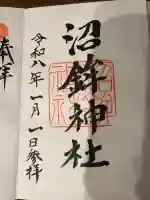 奉拝
沼鉾神社
令和八年一月一日参拝